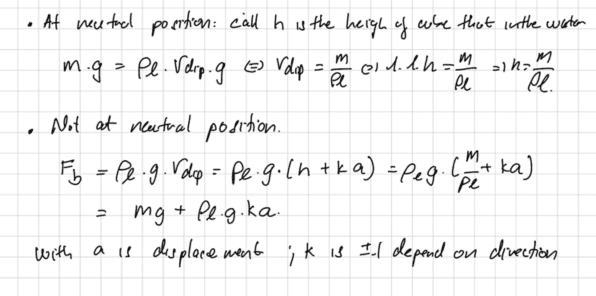 • At neutral position: call h is the heigh of cube that in the water
m.g = ρl.Vdip.g ⇔ Vdip = m/ρl ⇔ 1.1.h = m/ρl ⇒ h = m/ρl.
• Not at neutral position.
Fb = ρl.g.Vdip = ρl.g.(h + ka) = ρl g.(m/ρl + ka)
= mg + ρl.g.ka.
with a is displacement ; k is ±1 depend on direction